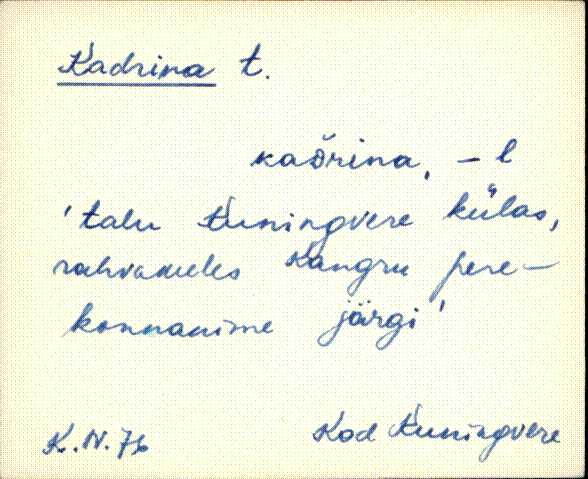 Kadrina t.
kaðrina, -l
'talu Kuningvere külas,
rahvakeeles Kangru pere-
konnanime järgi'
K.N. 76 Kod Kuningvere